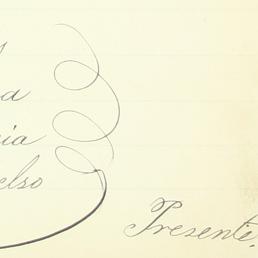 a
ia
elso
Presente.